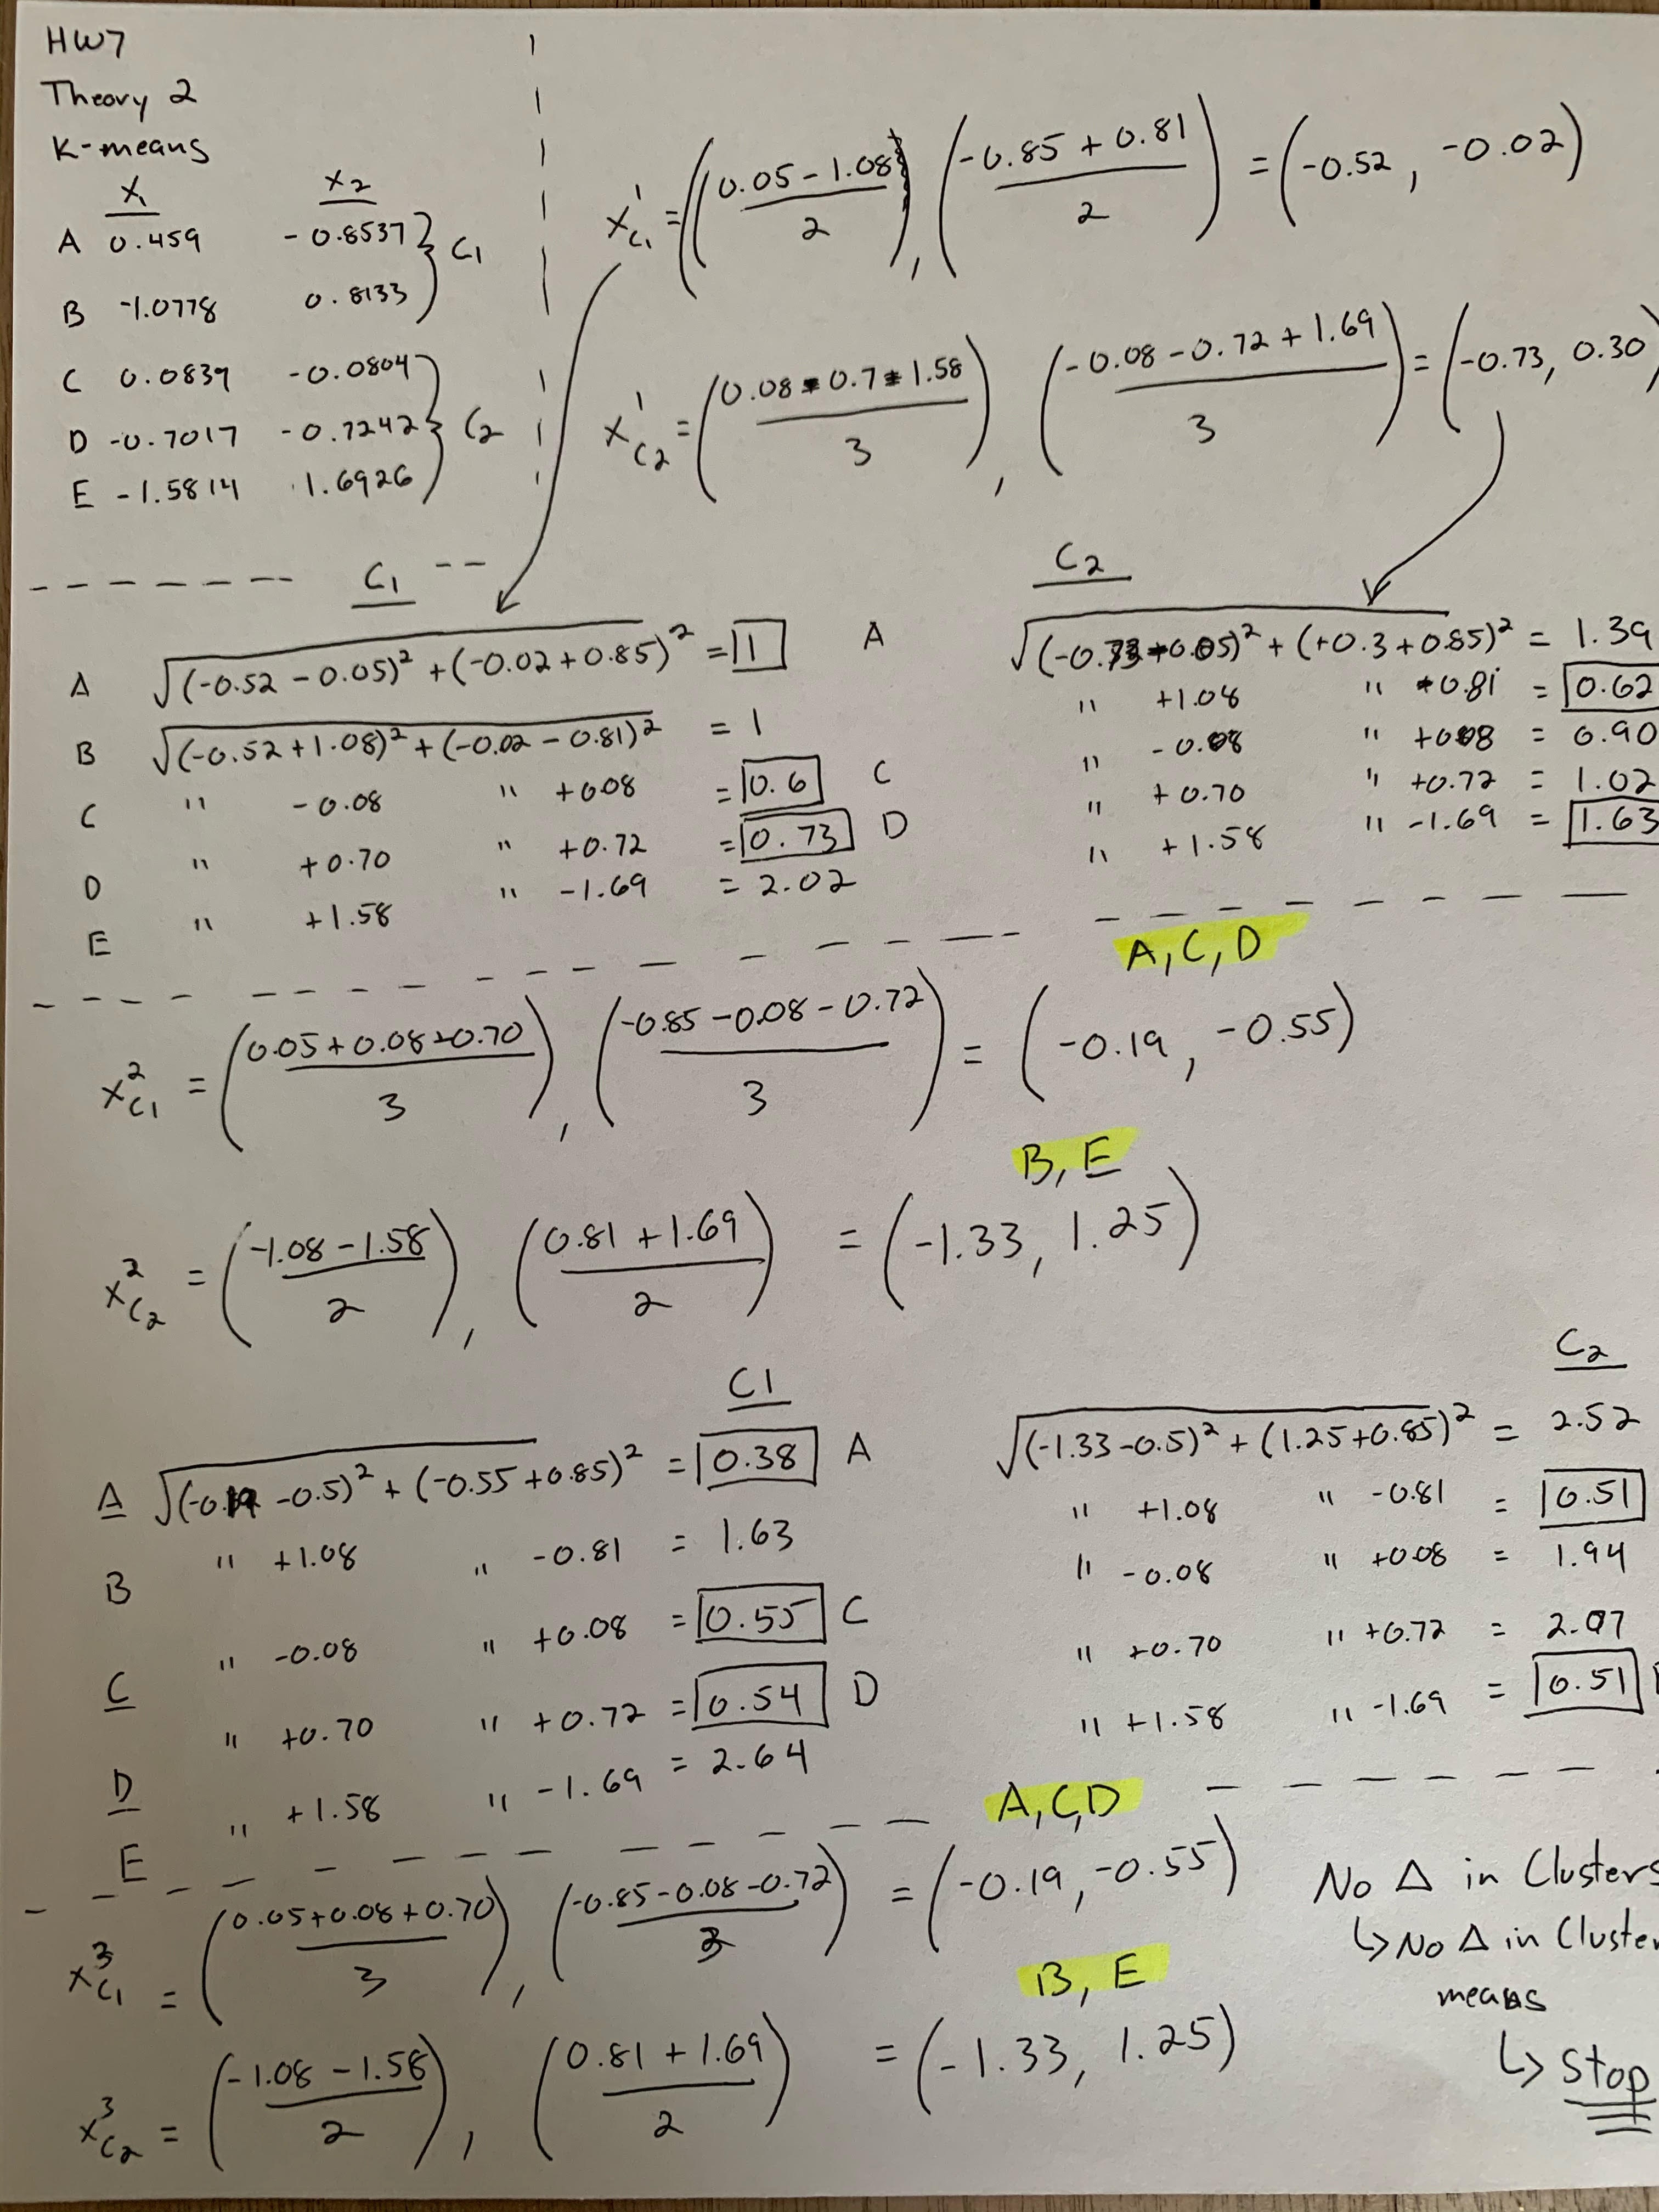 HW7
Theory 2
K-means
X₁ X₂
A 0.459 -0.8537
B -1.0778 0.8133 } C₁
C 0.0839 -0.0804
D -0.7017 -0.7242 } C₂
E -1.5814 1.6926
X¹_C₁ = ((0.05 - 1.08)/2), ((-0.85 + 0.81)/2) = (-0.52, -0.02)
X¹_C₂ = ((0.08 - 0.7 - 1.58)/3), ((-0.08 - 0.72 + 1.69)/3) = (-0.73, 0.30)
C₁
A √(-0.52 - 0.05)² + (-0.02 + 0.85)² = 1 A
B √(-0.52 + 1.08)² + (-0.02 - 0.81)² = 1
C " - 0.08 " + 0.08 = 0.6 C
D " + 0.70 " + 0.72 = 0.73 D
E " + 1.58 " - 1.69 = 2.02
C₂
√(-0.73 - 0.05)² + (+0.3 + 0.85)² = 1.39
" +1.08 " -0.81 = 0.62
" -0.08 " +0.08 = 0.90
" +0.70 " +0.72 = 1.02
" +1.58 " -1.69 = 1.63
A, C, D
X²_C1 = ((0.05 + 0.08 - 0.70)/3), ((-0.85 - 0.08 - 0.72)/3) = (-0.19, -0.55)
B, E
X²_C₂ = ((-1.08 - 1.58)/2), ((0.81 + 1.69)/2) = (-1.33, 1.25)
C1
A √(-0.19 - 0.5)² + (-0.55 + 0.85)² = 0.38 A
B " +1.08 " -0.81 = 1.63
C " -0.08 " +0.08 = 0.55 C
D " +0.70 " +0.72 = 0.54 D
E " +1.58 " -1.69 = 2.64
C₂
√(-1.33 - 0.5)² + (1.25 + 0.85)² = 2.52
" +1.08 " -0.81 = 0.51
" -0.08 " +0.08 = 1.94
" +0.70 " +0.72 = 2.07
" +1.58 " -1.69 = 0.51
A, C, D
X³_C1 = ((0.05 + 0.08 + 0.70)/3), ((-0.85 - 0.08 - 0.72)/3) = (-0.19, -0.55)
B, E
X³_C₂ = ((-1.08 - 1.58)/2), ((0.81 + 1.69)/2) = (-1.33, 1.25)
No Δ in Clusters
↳ No Δ in Cluster
means
↳ Stop